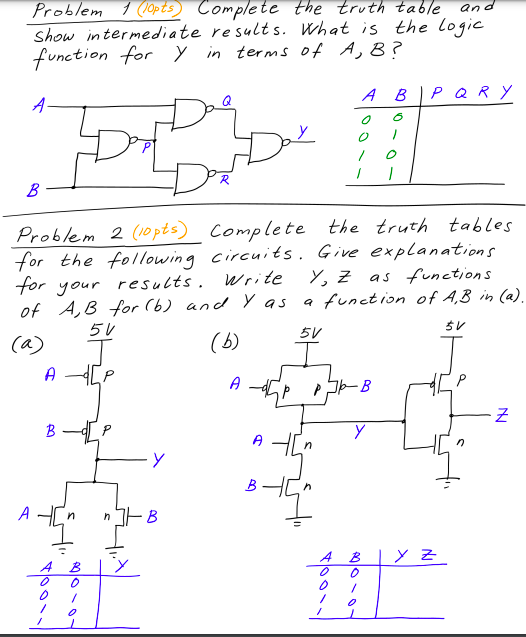 Problem 1 (10pts) Complete the truth table and
show intermediate results. What is the logic
function for Y in terms of A, B?
A
Q
P
Y
R
B
A B P Q R Y
0 0
0 1
1 0
1 1
Problem 2 (10pts) Complete the truth tables
for the following circuits. Give explanations
for your results. Write Y, Z as functions
of A,B for (b) and Y as a function of A,B in (a).
(a)
5V
A
P
B
P
Y
A
n
n
B
A B Y
0 0
0 1
1 0
1 1
(b)
5V
A
P
P
B
A
n
Y
B
n
5V
P
Z
n
A B Y Z
0 0
0 1
1 0
1 1